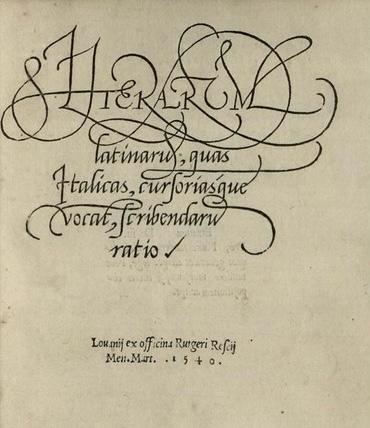 LITERARUM
latinarũ, quas
Italicas, curſoriasq́ue
vocãt, ſcribendarũ
ratio
Louanij ex officina Rutgeri Reſcij
Men. Mart. . 1 5 4 0 .